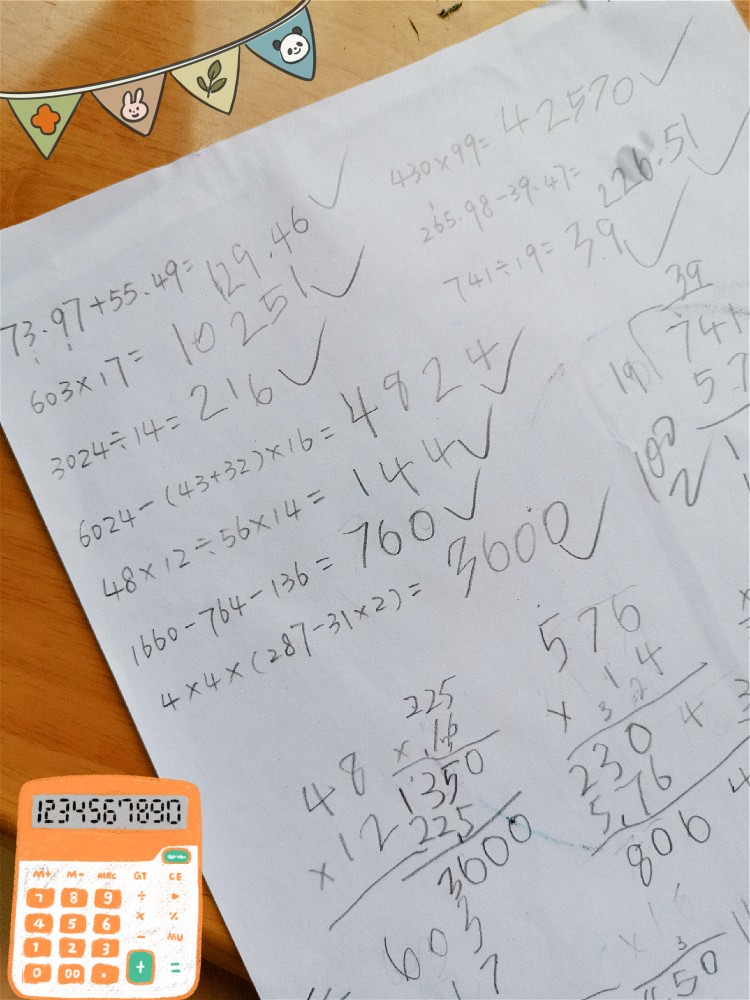 430×99=42570
265.98-39.47=226.51
741÷19=39
73.97+55.49=129.46
603×17=10251
3024÷14=216
6024-(43+32)×16=4824
48×12÷56×14=144
1660-764-136=760
4×4×(287-31×2)=3600
39
741
57
100
225
×16
1350
225
3600
48
×12
576
×14
32
230 4
576
806 4
603
17
1234567890
M+ M- MRC GT CE
7 8 9 ÷
4 5 6 × %
1 2 3 - MU
0 00 . + =